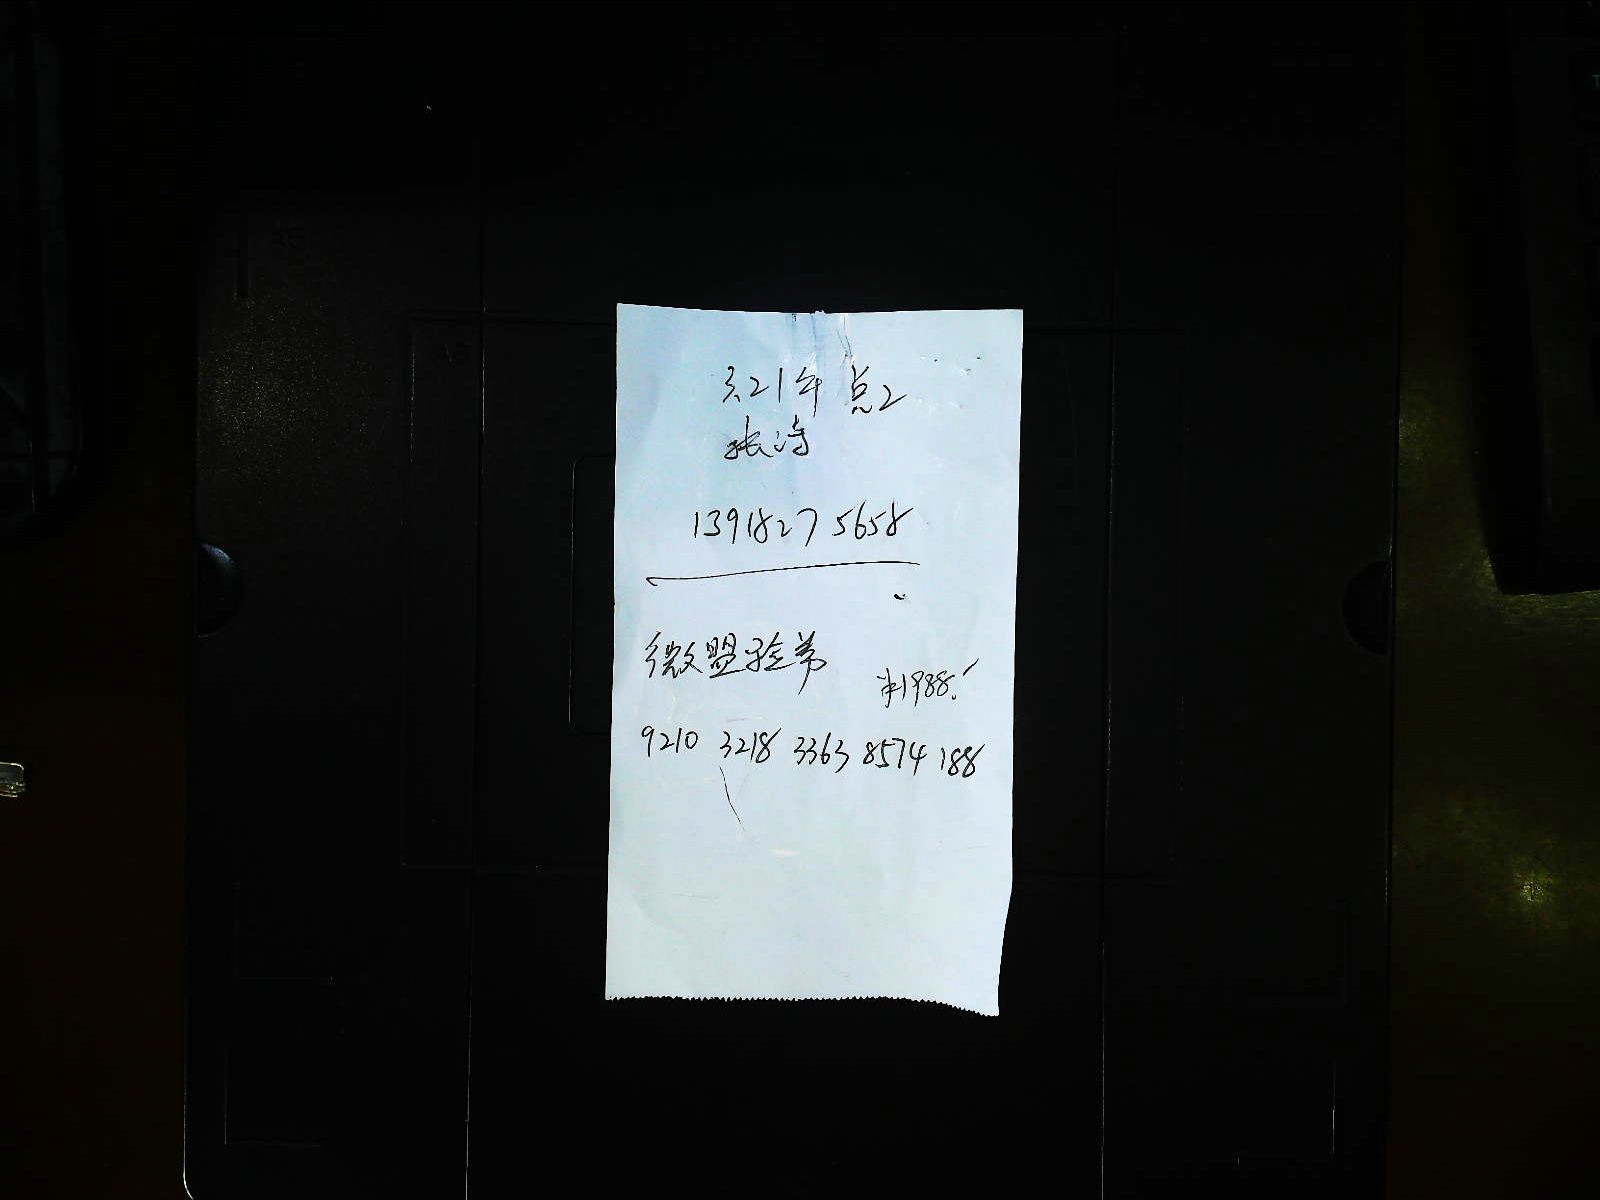 21年 总2
张涛
13918275658
微盟验券
¥1988.
9210 3218 3363 8574 188